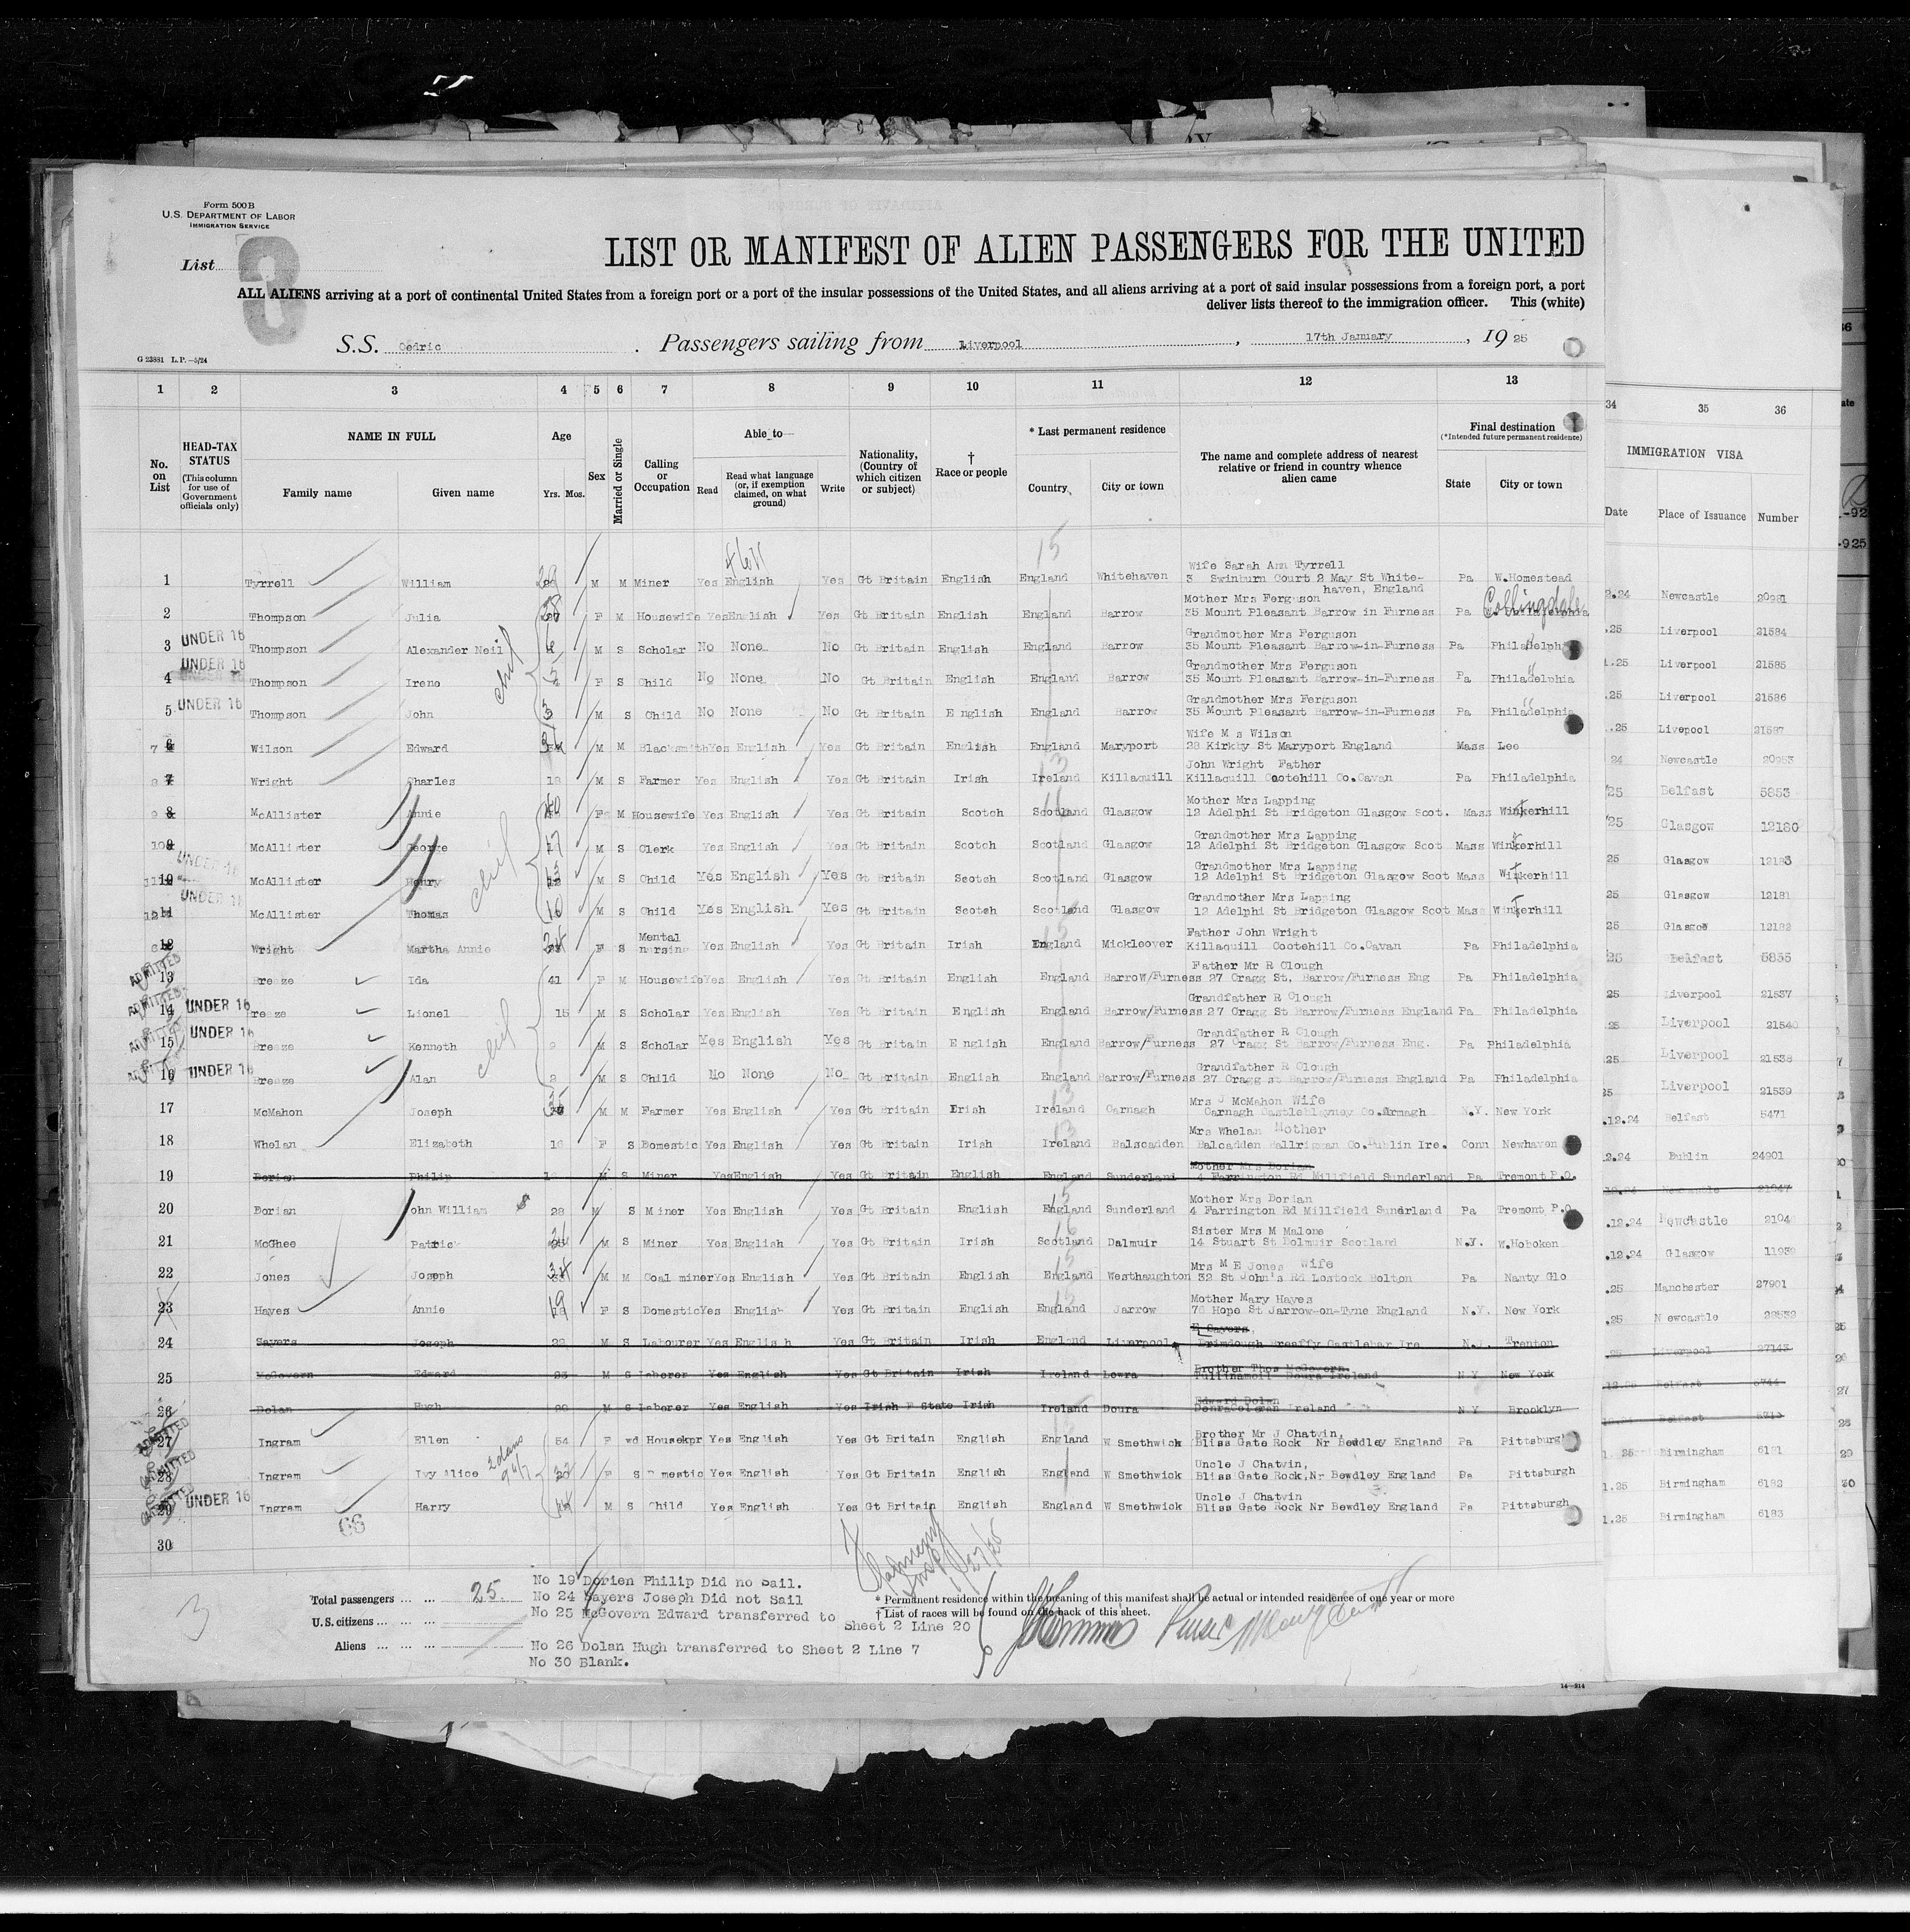 Form 500B
U.S. DEPARTMENT OF LABOR
IMMIGRATION SERVICE
List 3
LIST OR MANIFEST OF ALIEN PASSENGERS FOR THE UNITED
ALL ALIENS arriving at a port of continental United States from a foreign port or a port of the insular possessions of the United States, and all aliens arriving at a port of said insular possessions from a foreign port, a port
deliver lists thereof to the immigration officer. This (white)
S.S. Cedric. Passengers sailing from Liverpool, 17th January, 1925
G 23881 L.P.—5/24
1 2 3 4 5 6 7 8 9 10 11 12 13 34 35 36
No. on List
HEAD-TAX STATUS (This column for use of Government officials only)
NAME IN FULL
Family name Given name
Age
Yrs. Mos.
Sex
Married or Single
Calling or Occupation
Able to—
Read Read what language (or, if exemption claimed, on what ground) Write
Nationality, (Country of which citizen or subject)
† Race or people
* Last permanent residence
Country City or town
The name and complete address of nearest relative or friend in country whence alien came
Final destination
(*Intended future permanent residence)
State City or town
IMMIGRATION VISA
Date Place of Issuance Number
15
Wife Sarah Ann Tyrrell
1 Tyrrell William M M Miner Yes English Yes Gt Britain English England Whitehaven 3 Swinburn Court 2 May St White- Pa W.Homestead
haven, England
2.24 Newcastle 20981
Mother Mrs Ferguson Collingdale
2 Thompson Julia F M Housewife Yes English Yes Gt Britain English England Barrow 35 Mount Pleasant Barrow in Furness Pa
.25 Liverpool 21584
UNDER 16 Grandmother Mrs Ferguson
3 Thompson Alexander Neil 6 M S Scholar No None No Gt Britain English England Barrow 35 Mount Pleasant Barrow-in-Furness Pa Philadelph
1.25 Liverpool 21585
UNDER 16 Grandmother Mrs Ferguson
4 Thompson Irene 5 F S Child No None No Gt Britain English England Barrow 35 Mount Pleasant Barrow-in-Furness Pa Philadelphia
.25 Liverpool 21586
UNDER 16 Grandmother Mrs Ferguson
5 Thompson John 3 M S Child No None No Gt Britain English England Barrow 35 Mount Pleasant Barrow-in-Furness Pa Philadelphia
.25 Livepool 21587
Wife M s Wilson
7 6 Wilson Edward M M Blacksmith Yes English Yes Gt Britain English England Maryport 28 Kirkby St Maryport England Mass Lee
24 Newcastle 20983
13 John Wright Father
8 7 Wright Charles 18 M S Farmer Yes English Yes Gt Britain Irish Ireland Killaquill Killaquill Cootehill Co.Cavan Pa Philadelphia
25 Belfast 5853
Mother Mrs Lapping
9 8 McAllister Annie 40 F M Housewife Yes English Yes Gt Britain Scotch Scotland Glasgow 12 Adelphi St Bridgeton Glasgow Scot. Mass Winkerhill
25 Glasgow 12180
Grandmother Mrs Lapping
10 9 McAllister George 17 M S Clerk Yes English Yes Gt Britain Scotch Scotland Glasgow 12 Adelphi St Bridgeton Glasgow Scot Mass Winkerhill
25 Glasgow 12183
UNDER 16 Grandmother Mrs Lapping
11 10 McAllister Henry 13 M S Child Yes English Yes Gt Britain Scotch Scotland Glasgow 12 Adelphi St Bridgeton Glasgow Scot Mass Winkerhill
25 Glasgow 12181
UNDER 16 Grandmother Mrs Lapping
12 11 McAllister Thomas 10 M S Child Yes English Yes Gt Britain Scotch Scotland Glasgow 12 Adelphi St Bridgeton Glasgow Scot Mass Winkerhill
25 Glasgow 12182
Father John Wright
6 12 Wright Martha Annie F S Mental nursing Yes English Yes Gt Britain Irish England Mickleover Killaquill Cootehill Co.Cavan Pa Philadelphia
25 Belfast 5835
ADMITTED Father Mr R Clough
13 Breeze Ida 41 F M Housewife Yes English Yes Gt Britain English England Barrow/Furness 27 Cragg St, Barrow/Furness Eng Pa Philadelphia
25 Liverpool 21537
ADMITTED UNDER 16 Grandfather R Clough
14 reeze Lionel 15 M S Scholar Yes English Yes Gt Britain English England Barrow/Furness 27 Cragg St Barrow/Furness England Pa Philadelphia
25 Liverpool 21540
ADMITTED UNDER 16 Grandfather R Clough
15 Breeze Kenneth M S Scholar Yes English Yes Gt Britain English England Barrow/Furness 27 Cragg St Barrow/Furness Eng. Pa Philadelphia
25 Liverpool 21538
ADMITTED UNDER 16 Grandfather R Clough
16 Breeze Alan 2 M S Child No None No Gt Britain English England Barrow/Furness 27 Cragg st Barrow/Furness England Pa Philadelphia
25 Liverpool 21539
13 Mrs J McMahon Wife
17 McMahon Joseph M M Farmer Yes English Yes Gt Britain Irish Ireland Carnagh Carnagh Castleblayney Co.Armagh N.Y. New York
.12.24 Belfast 5471
13 Mrs Whelan Mother
18 Whelan Elizabeth F S Domestic Yes English Yes Gt Britain Irish Ireland Balscadden Balcadden Ballrigwan Co.Dublin Ire. Conn Newhaven
2.24 Dublin 24901
Mother Mrs Dorian
19 Dorian Philip M S Miner Yes English Yes Gt Britain English England Sunderland 4 Farrington Rd Millfield Sunderland Pa Tremont P.O.
12.24 Newcastle 21047
15 Mother Mrs Dorian
20 Dorian ohn William 28 M S Miner Yes English Yes Gt Britain English England Sunderland 4 Farrington Rd Millfield Sundrland Pa Tremont P.O
.12.24 Newcastle 2104
16 Sister Mrs M Malone
21 McGhee Patrick M S Miner Yes English Yes Gt Britain Irish Scotland Dalmuir 14 Stuart St Dolmuir Scotland N.Y. W.Hoboken
.12.24 Glasgow 11939
15 Mrs M E Jones Wife
22 Jones Joseph M M Coal miner Yes English Yes Gt Britain English England Westhaughton 32 St John's Rd Lostock Bolton Pa Nanty Glo
.25 Manchester 27901
15 Mother Mary Hayes
23 Hayes Annie 19 F S Domestic Yes English Yes Gt Britain English England Jarrow 76 Hope St Jarrow-on-Tyne England N.Y. New York
.25 Newcastle
E Sayers,
24 Sayers Joseph 22 M S Labourer Yes English Yes Gt Britain Irish England Liverpool Drimdough Breaffy Castlebar Ire N.J. Trenton
.25 Liverpool 27143
Brother Thos McGovern
25 McGovern Edward 23 M S Laborer Yes English Yes Gt Britain Irish Ireland Lowra Doura Ireland N Y New York
Belfast
Edward Dolan
26 Dolan Hugh M S Laborer Yes English Yes Irish F State Irish Ireland Doura Ireland N Y Brooklyn
Belfast
ADMITTED Brother Mr J Chatwin,
27 Ingram Ellen 54 F wd Housekpr Yes English Yes Gt Britain English England W Smethwick Bliss Gate Rock Nr Bewdley England Pa Pittsburgh
1.25 Birmingham 6181
ADMITTED Uncle J Chatwin,
28 Ingram Ivy Alice F S mestic Yes English Yes Gt Britain English England W Smethwick Bliss Gate Rock,Nr Bewdley England Pa Pittsburgh
1.25 Birmingham 6182
ADMITTED UNDER 16 Uncle J Chatwin
29 Ingram Harry M S Child Yes English Yes Gt Britain English England W Smethwick Bliss Gate Rock Nr Bewdley England Pa Pittsburgh
1.25 Birmingham 6183
66
30
No 19 Dorien Philip Did no Sail.
Total passengers 25. No 24 Sayers Joseph Did not Sail
* Permanent residence within the meaning of this manifest shall be actual or intended residence of one year or more
U.S. citizens No 25 McGovern Edward transferred to
† List of races will be found on the back of this sheet.
Sheet 2 Line 20
Aliens No 26 Dolan Hugh transferred to Sheet 2 Line 7
No 30 Blank.
3
14—214